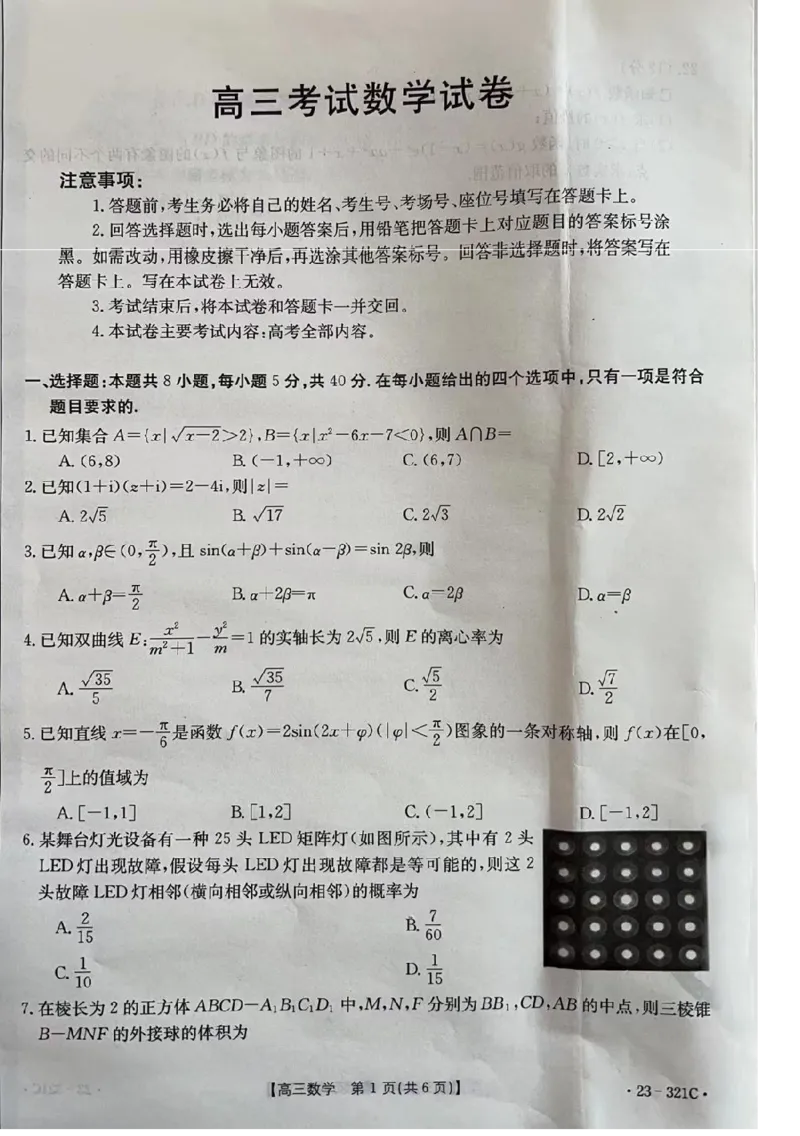 高三考试数学试卷
注意事项:
1.答题前,考生务必将自己的姓名、考生号、考场号、座位号填写在答题卡上。
2.回答选择题时,选出每小题答案后,用铅笔把答题卡上对应题目的答案标号涂
黑。如需改动,用橡皮擦干净后,再选涂其他答案标号。回答非选择题时,将答案写在
答题卡上。写在本试卷上无效。
3.考试结束后,将本试卷和答题卡一并交回。
4.本试卷主要考试内容:高考全部内容。
一、选择题:本题共8小题,每小题5分,共40分.在每小题给出的四个选项中,只有一项是符合
题目要求的.
1.已知集合A={x|√(x-2)>2},B={x|x²-6x-7<0},则A∩B=
A.(6,8) B.(-1,+∞) C.(6,7) D.[2,+∞)
2.已知(1+i)(z+i)=2-4i,则|z|=
A.2√5 B.√17 C.2√3 D.2√2
3.已知α,β∈(0,π/2),且sin(α+β)+sin(α-β)=sin 2β,则
A.α+β=π/2 B.α+2β=π C.α=2β D.α=β
4.已知双曲线E:x²/(m²+1)-y²/m=1的实轴长为2√5,则E的离心率为
A.√35/5 B.√35/7 C.√5/2 D.√7/2
5.已知直线x=-π/6是函数f(x)=2sin(2x+φ)(|φ|<π/2)图象的一条对称轴,则f(x)在[0,
π/2]上的值域为
A.[-1,1] B.[1,2] C.(-1,2] D.[-1,2]
6.某舞台灯光设备有一种25头LED矩阵灯(如图所示),其中有2头
LED灯出现故障,假设每头LED灯出现故障都是等可能的,则这2
头故障LED灯相邻(横向相邻或纵向相邻)的概率为
A.2/15 B.7/60
C.1/10 D.1/15
7.在棱长为2的正方体ABCD-A₁B₁C₁D₁中,M,N,F分别为BB₁,CD,AB的中点,则三棱锥
B-MNF的外接球的体积为
【高三数学 第1页(共6页)】
·23-321C·